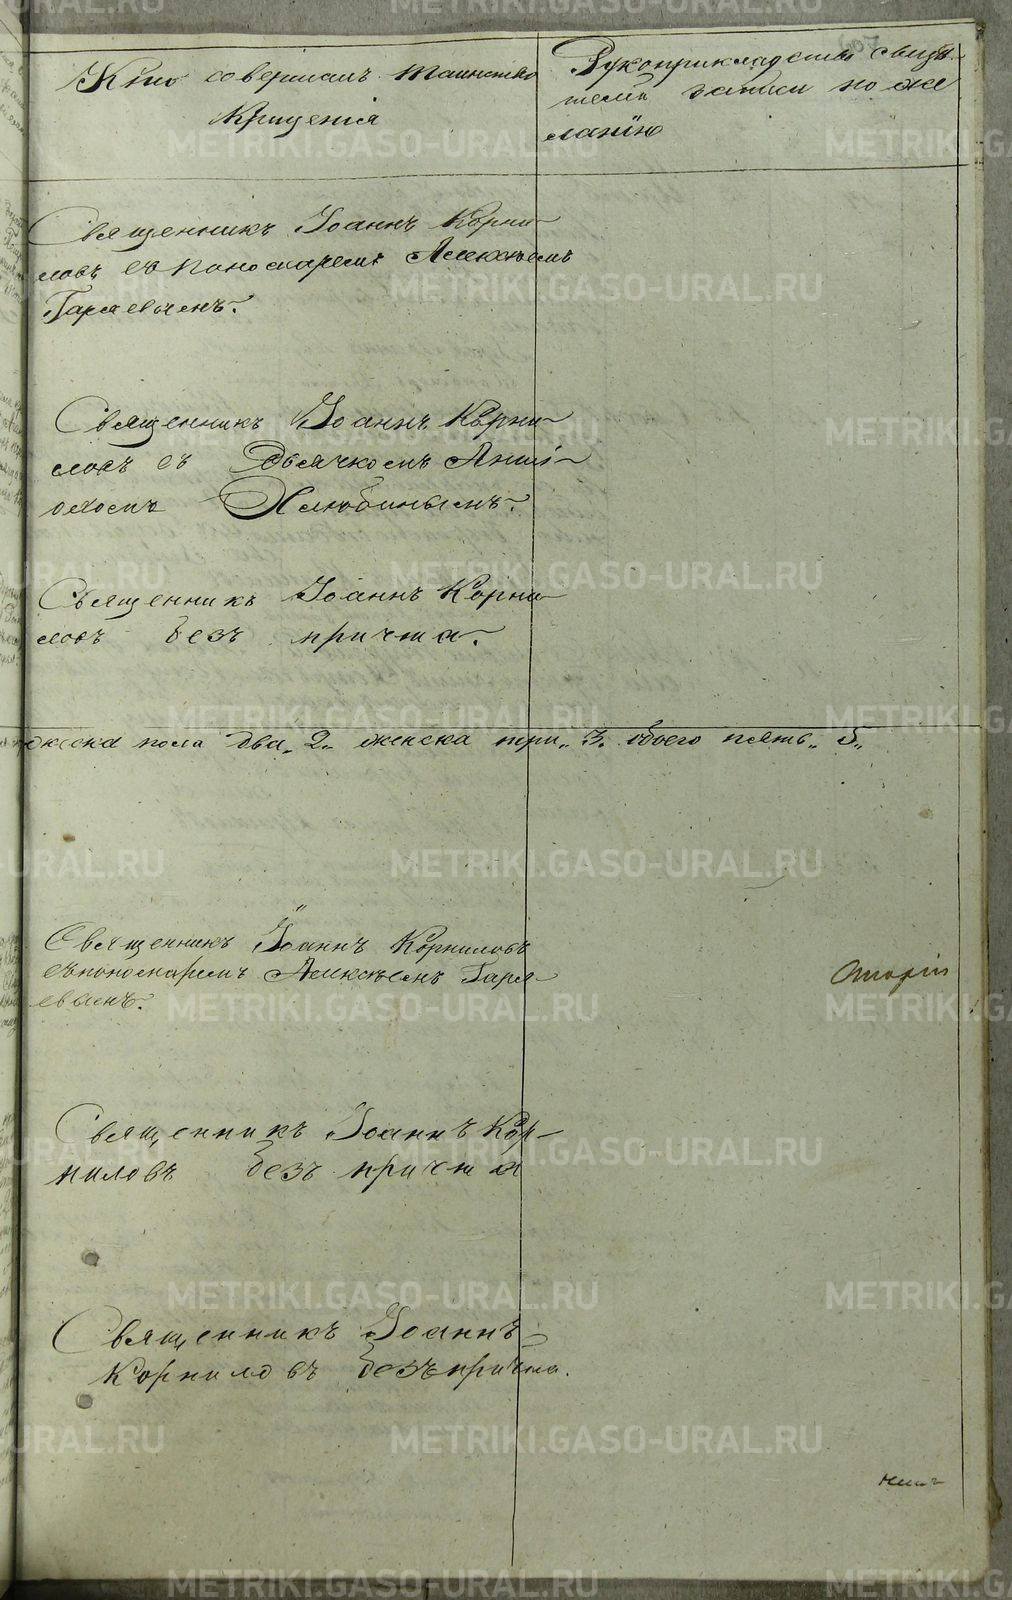 Кто совершалъ таинство
Крещенія
Рукоприкладство свидѣ-
телей записи по же
ланію
Священникъ Іоаннъ Корни-
ловъ съ пономаремъ Алексѣемъ
Священникъ Іоаннъ Корни-
ловъ съ Дьячкомъ
Хлюбинымъ.
Священникъ Іоаннъ Корни-
ловъ безъ причта.
пола два, 2, женска три, 3, обоего пять, 5,
Священникъ Іоаннъ Корниловъ
съ пономаремъ Алексѣемъ
Священникъ Іоаннъ Кор-
ниловъ безъ причта
Священникъ Іоаннъ
Корниловъ безъ причта.
METRIKI.GASO-URAL.RU